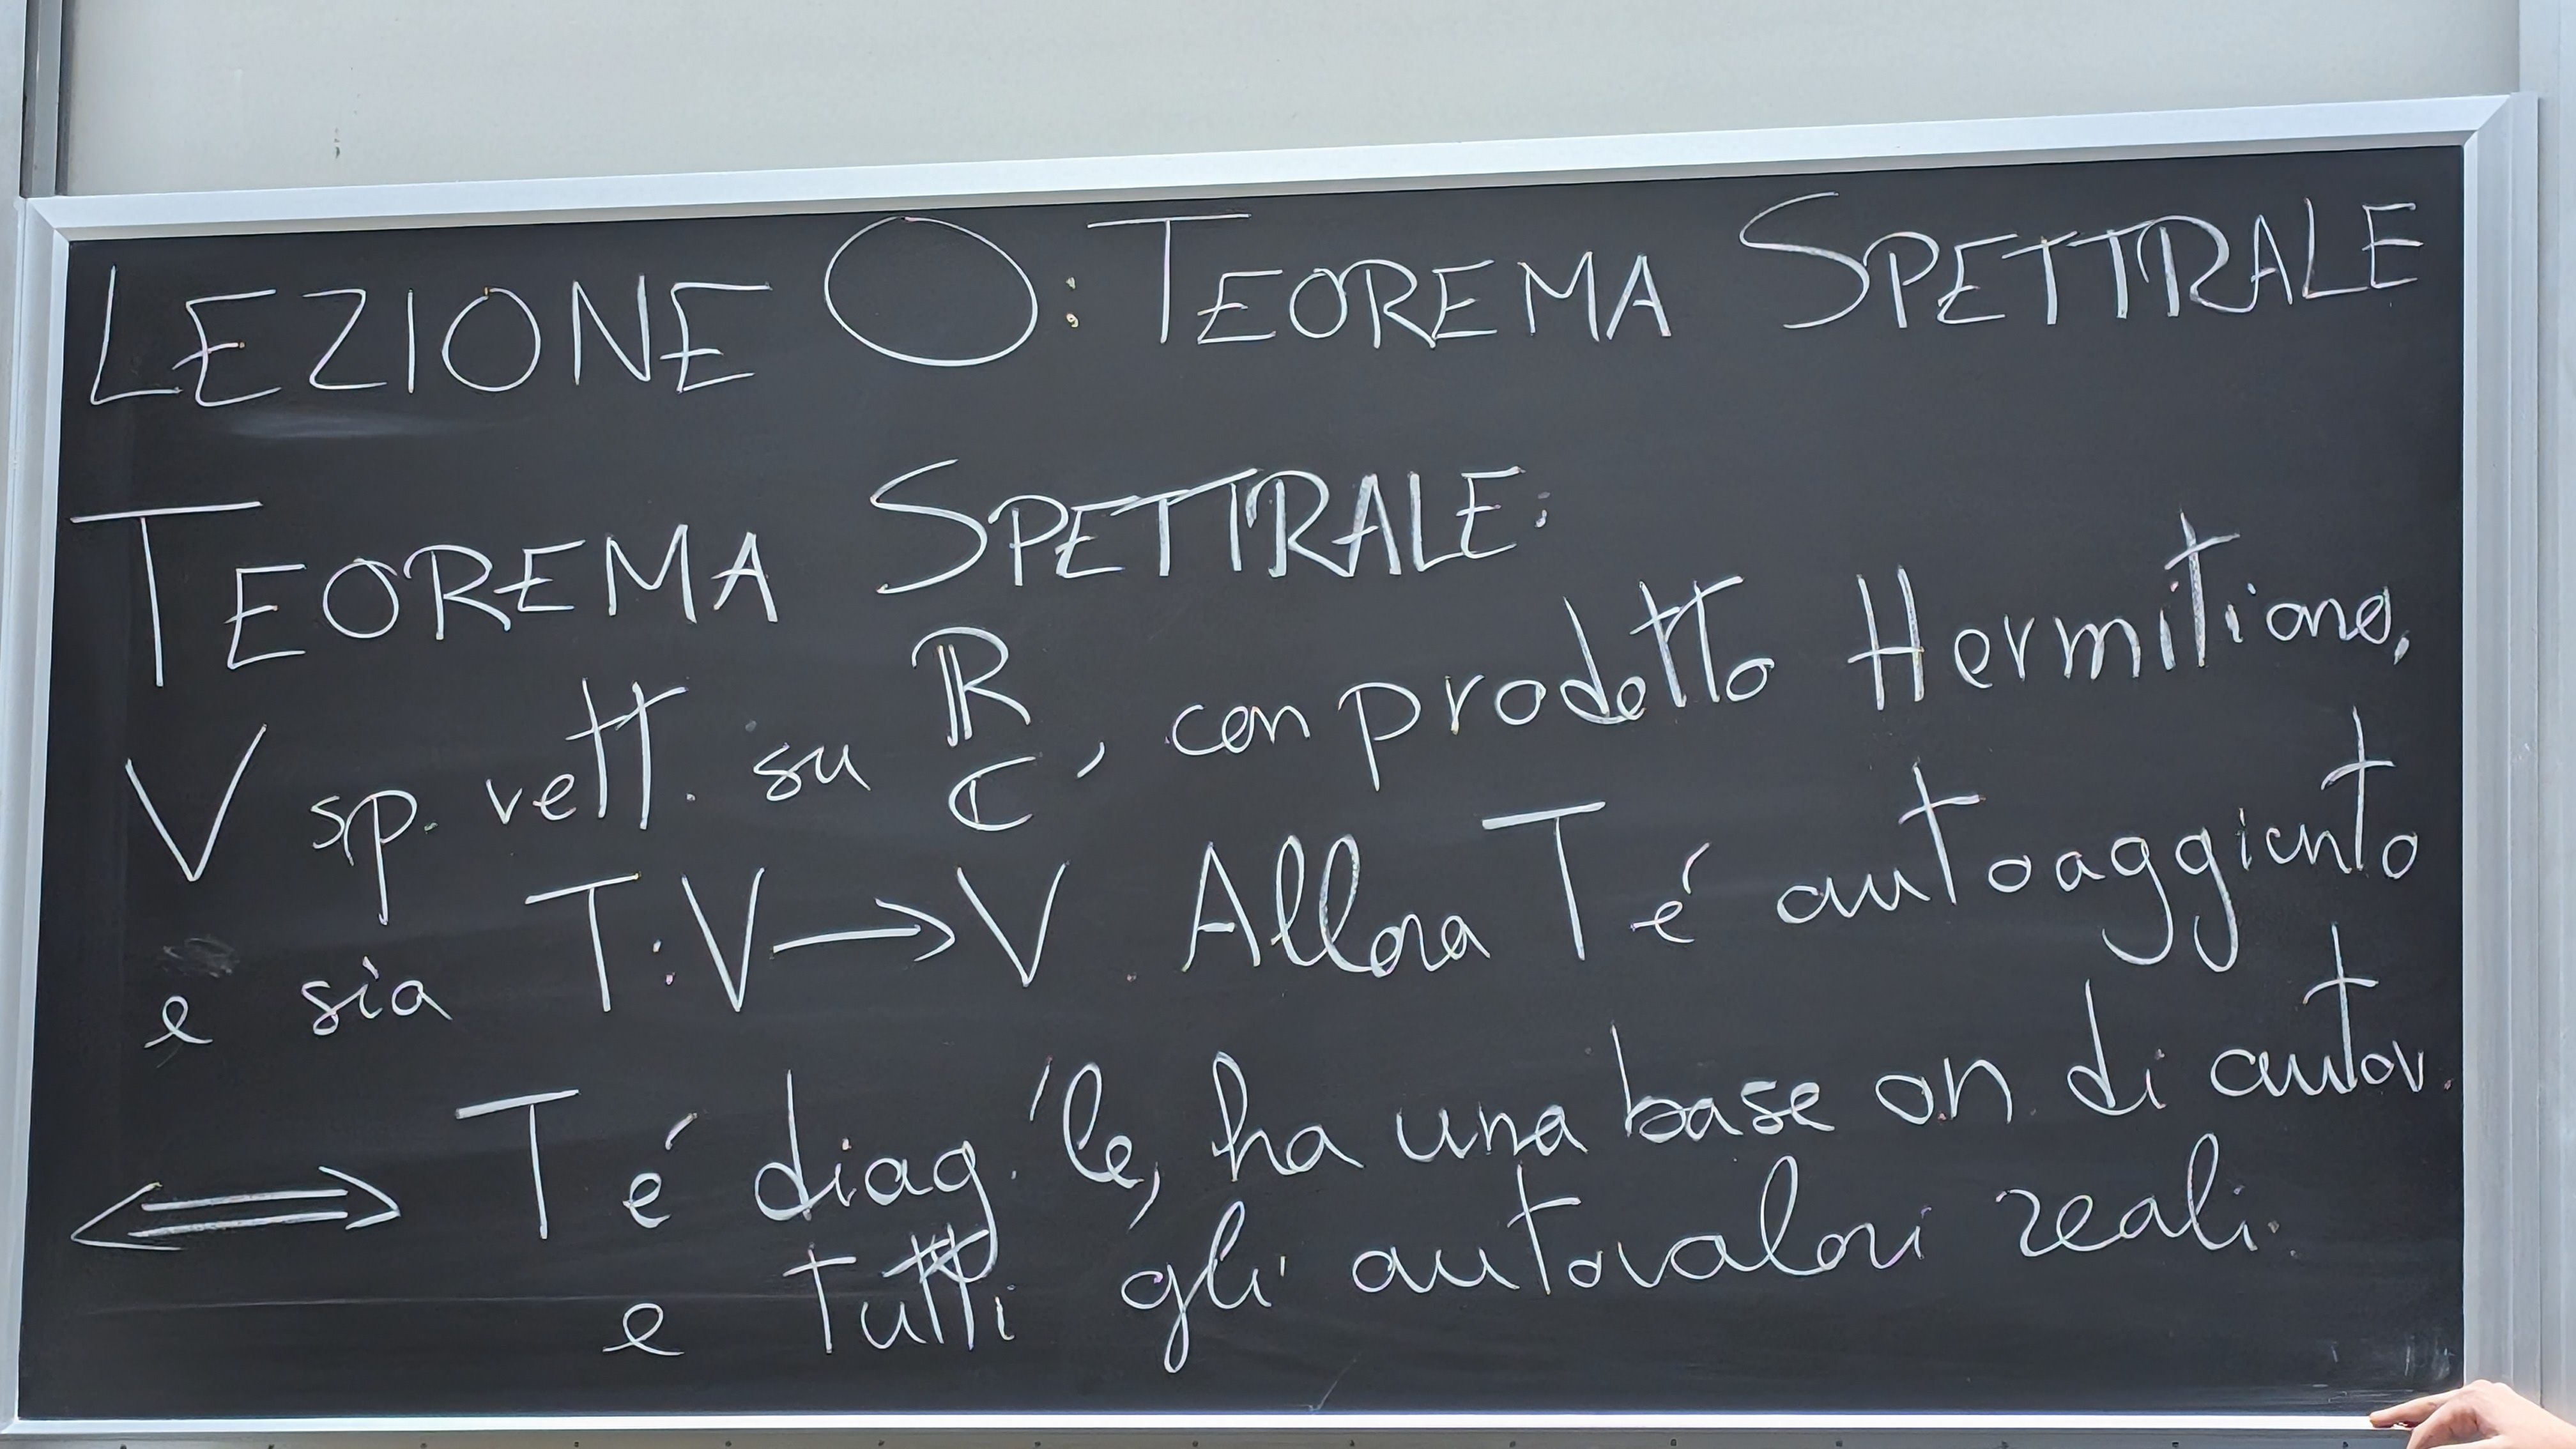 LEZIONE 0: TEOREMA SPETTRALE
TEOREMA SPETTRALE:
V sp. vett. su ℝ ℂ, con prodotto Hermitiano,
e sia T: V → V. Allora T é autoaggiunto
⟺ T é diag.'le, ha una base on di autov.
e tutti gli autovalori reali.